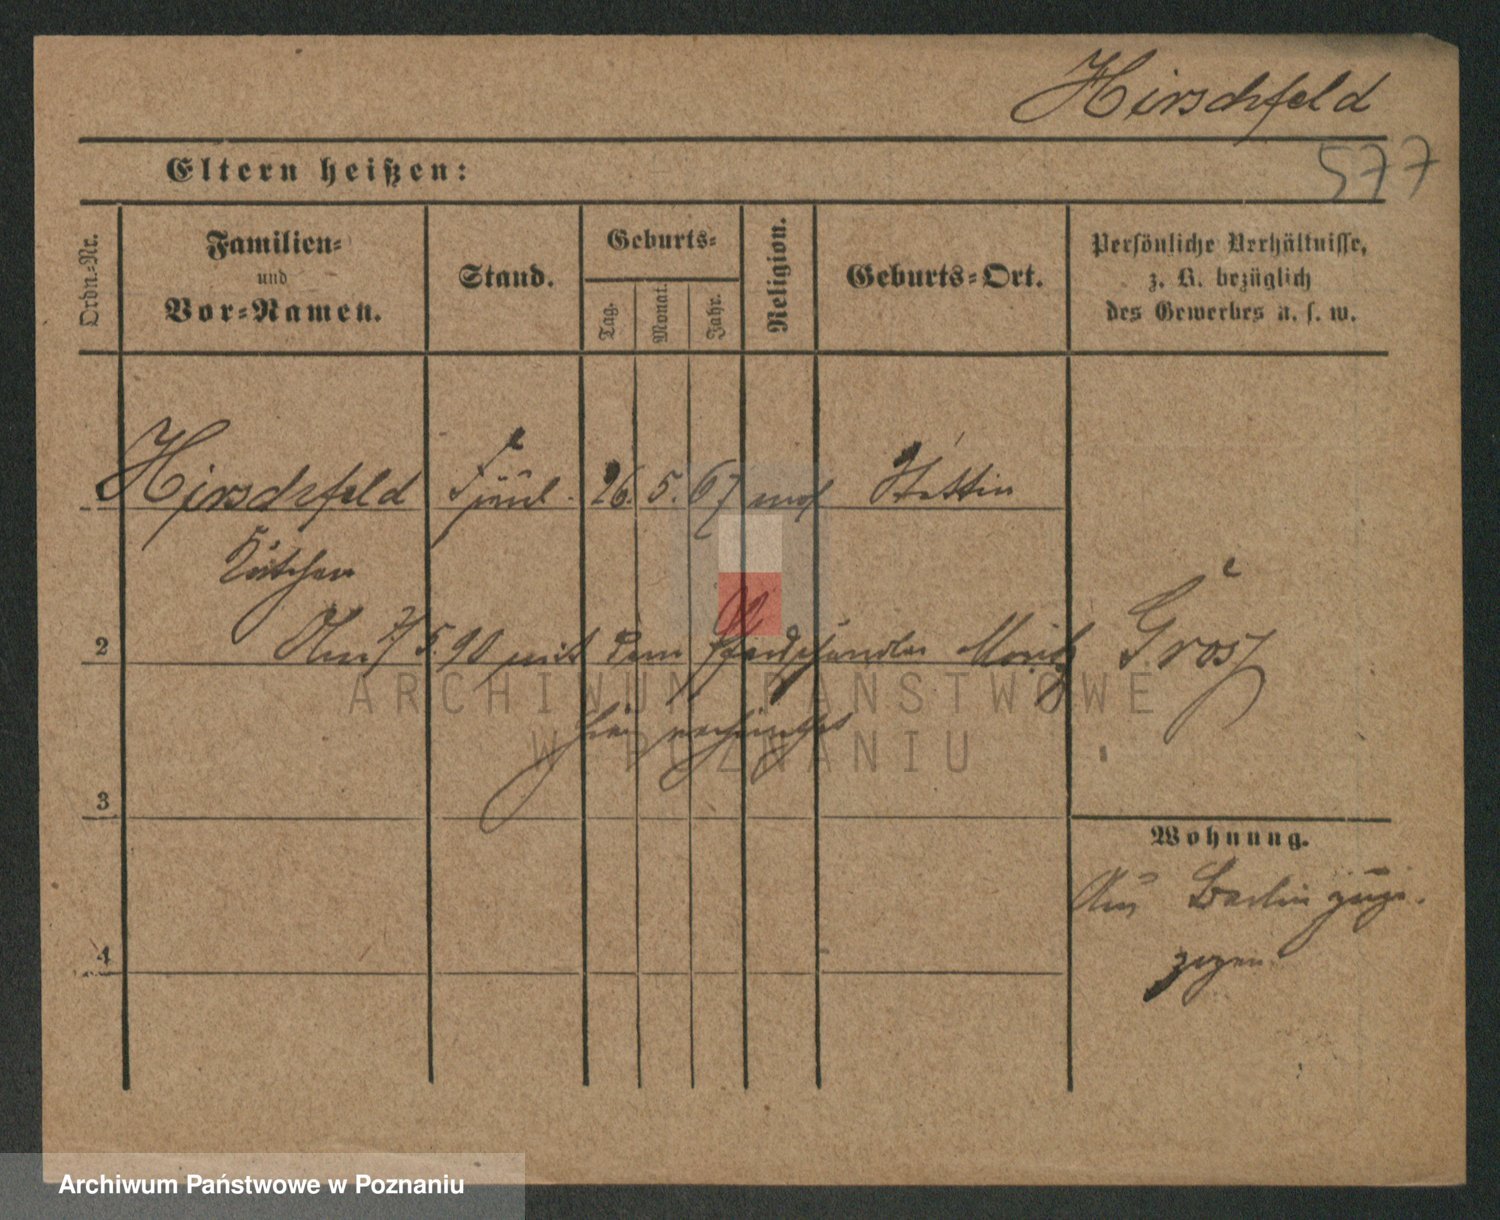 Hirschfeld
577
Eltern heißen:
Ordn.-Nr.
Familien-
und
Vor-Namen.
Stand.
Geburts-
Tag.
Monat.
Jahr.
Religion.
Geburts-Ort.
Persönliche Verhältnisse,
z. B. bezüglich
des Gewerbes u. s. w.
Hirschfeld Fräul. 26. 5. 67 mos Stettin
Kätchen
2 Am 7/5. 90 mit dem Pferdehändler Moritz Grosz
hier verheirathet
3
Wohnung.
Aus Berlin zuge-
zogen
4
ARCHIWUM PAŃSTWOWE
W POZNANIU
Archiwum Państwowe w Poznaniu